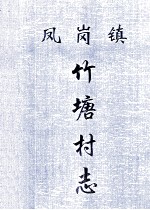 凤岗镇
竹塘村志